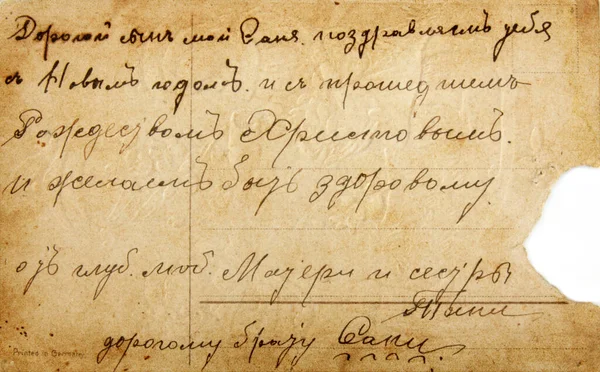 Дорогой сынъ мой Саня. поздравляемъ тебя
съ Новымъ годомъ. и съ прошедшемъ
Рождествомъ Христовымъ.
и желаемъ быть здоровому.
отъ глуб. люб. Матери и сестры
Тани
дорогому брату Сани.
Printed in Germany